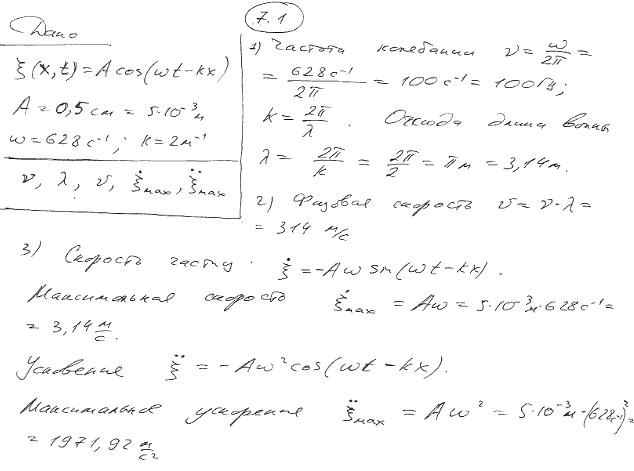 Дано
ξ(x,t) = A cos(ωt - kx)
A = 0,5 см = 5·10⁻³ м
ω = 628 с⁻¹; k = 2 м⁻¹
ν, λ, v, ξ̇max, ξ̈max
7.1
1) Частота колебании ν = ω/2π =
= 628 с⁻¹/2π = 100 с⁻¹ = 100 Гц;
k = 2π/λ. Отсюда длина волны
λ = 2π/k = 2π/2 = π м = 3,14 м.
2) Фазовая скорость v = ν·λ =
= 314 м/с
3) Скорость частиц. ξ̇ = -Aω sin(ωt - kx).
Максимальная скорость ξ̇max = Aω = 5·10⁻³ м·628 с⁻¹ =
= 3,14 м/с.
Ускорение ξ̈ = -Aω² cos(ωt - kx).
Максимальное ускорение ξ̈max = Aω² = 5·10⁻³ м·(628 с⁻¹)² =
= 1971,92 м/с²